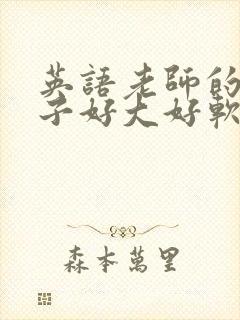 英語老師的
子好大好軟
森本萬里